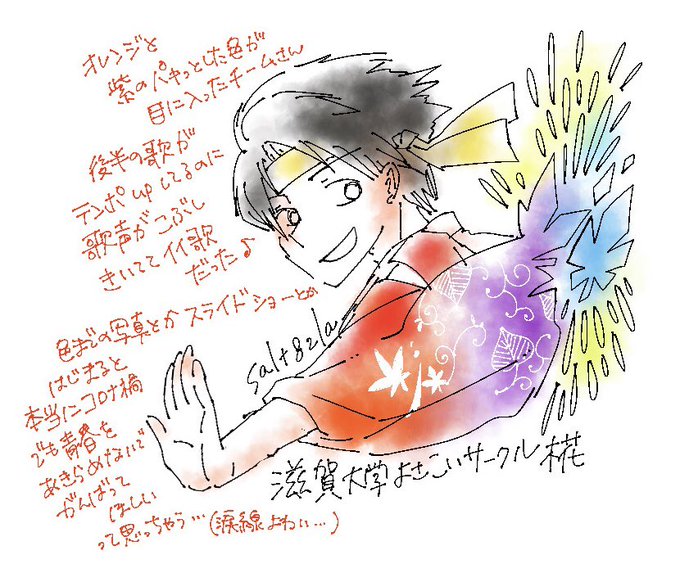 オレンジと
紫のパキッとした色が
目に入ったチームさん
後半の歌が
テンポupしてるのに
歌声がこぶし
きいててイイ歌
だった♪
色までの写真とか スライドショーとか
はじまると
本当にコロナ禍
でも青春を
あきらめないで
がんばって
ほしい
って思っちゃう…(涙線よわい…)
salt82la
滋賀大学よさこいサークル椛